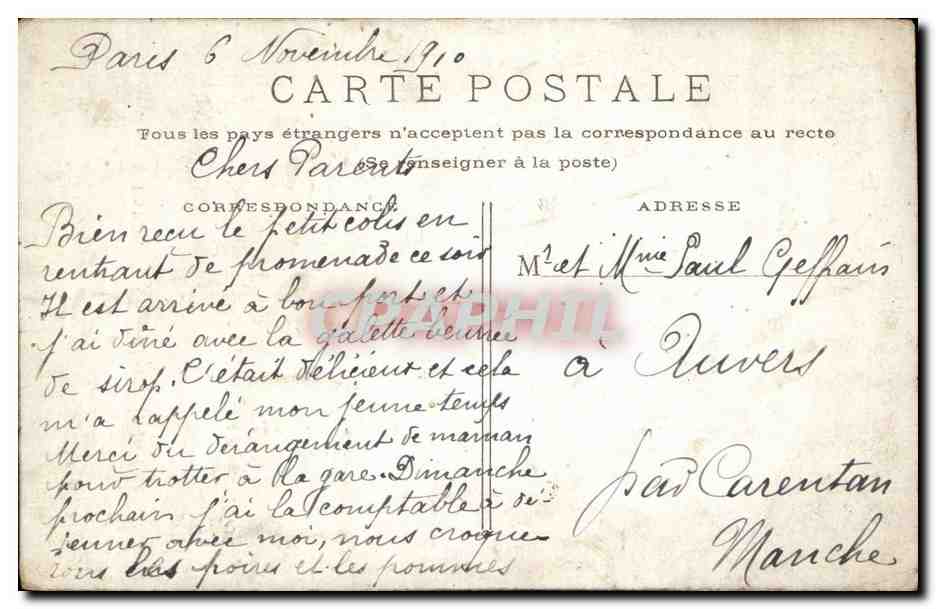 Paris 6 Novembre 1910
CARTE POSTALE
Tous les pays étrangers n'acceptent pas la correspondance au recto
(Se renseigner à la poste)
Chers Parents
CORRESPONDANCE
Bien reçu le petit colis en
rentrant de promenade ce soir
Il est arrivé à bon port et
j'ai dîné avec la galette beurrée
de sirop. C'était délicieux et cela
m'a rappelé mon jeune temps
Merci du dérangement de maman
pour trotter à la gare. Dimanche
prochain j'ai la comptable à dé-
jeuner avec moi, nous croque-
rons les poires et les pommes
ADRESSE
Mr et Mme Paul
à Auvers
par Carentan
Manche
CPAPHIL